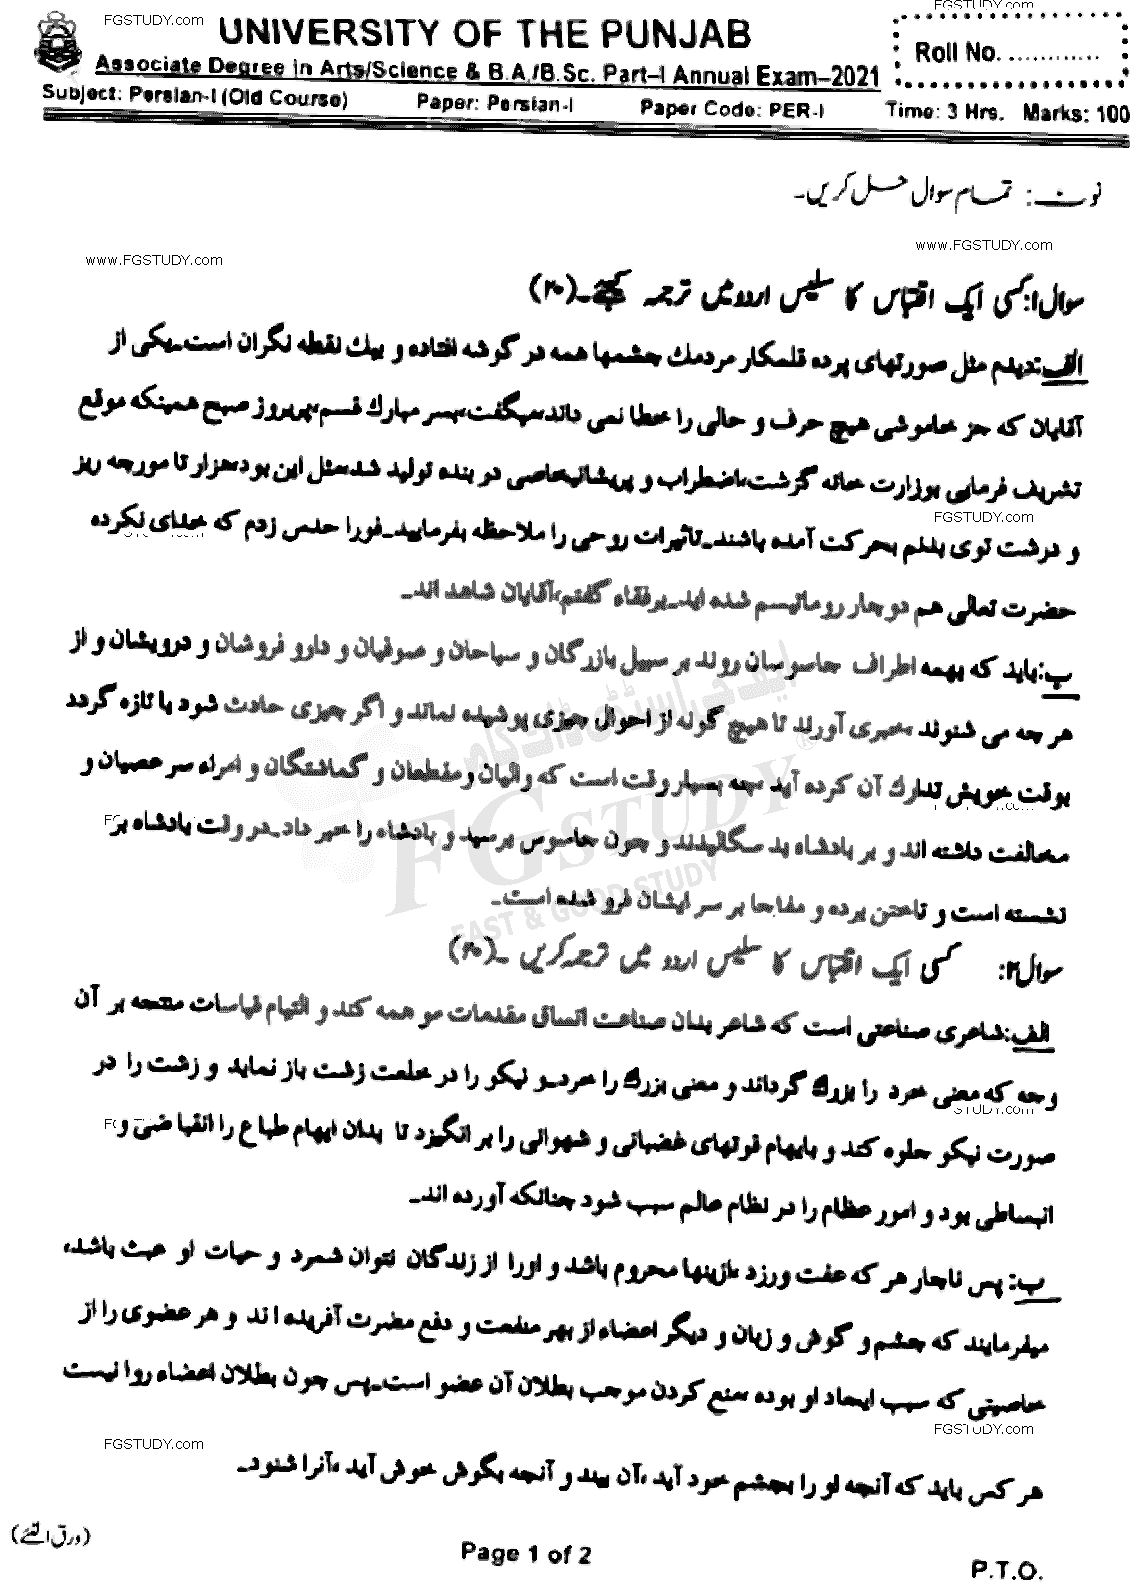 FGSTUDY.com
FGSTUDY.com
UNIVERSITY OF THE PUNJAB
Roll No. ............
Associate Degree in Arts/Science & B.A./B.Sc. Part–I Annual Exam–2021
Subject: Persian-I (Old Course) Paper: Persian-I Paper Code: PER-I Time: 3 Hrs. Marks: 100
نوٹ: تمام سوال حل کریں۔
www.FGSTUDY.com
www.FGSTUDY.com
سوال۱: کسی ایک اقتباس کا سلیس اردو میں ترجمہ کیجئے۔(۲۰)
الف: دیدم مثل صورتهای پرده قلمکار مردمك چشمها همه در گوشه افتاده و بیك نقطه نگران است۔یکی از
آقایان که جز خاموشی هیچ حرف و حالی را خطا نمی داند،میگفت،بسر مبارك قسم،پریروز صبح همینکه موقع
تشریف فرمایی بوزارت خانه گزشت،اضطراب و پریشانیخاصی در بنده تولید شد،مثل این بود،هزار تا مورچه ریز
FGSTUDY.com
و درشت توی بدنم بحرکت آمده باشند۔تاثیرات روحی را ملاحظه بفرمایید۔فورا حدس زدم که خدای نکرده
حضرت تعالی هم دوچار روماتیسم شده اید۔برفقاء گفتم،آقایان شاهد اند۔
ب: باید که بهمه اطراف جاسوسان روند بر سبیل بازرگان و سیاحان و صوفیان و دارو فروشان و درویشان و از
هر چه می شنوند ،خبری آورند تا هیچ گونه از احوال چیزی پوشیده نماند و اگر چیزی حادث شود یا تازه گردد
بوقت خویش تدارك آن کرده آید ،چه بسیار وقت است که والیان و مقطعان و گماشتگان و امراء سر عصیان و
مخالفت داشته اند و بر بادشاه بد سگالیدند و چون جاسوس برسید و بادشاه را خبر داد۔در وقت بادشاه بر
نشسته است و تاختن برده و مفاجا بر سر ایشان فرو شده است۔
ایف جی اسٹڈی ڈاٹ کام
FGSTUDY
FAST & GOOD STUDY
سوال۲: کسی ایک اقتباس کا سلیس اردو میں ترجمہ کریں ۔(۲۰)
الف: شاعری صناعتی است که شاعر بدان صناعت اتساق مقدمات موهمه کند و التیام قیاسات منتجه بر آن
وجه که معنی خرد را بزرگ گرداند و معنی بزرگ را خرد۔و نیکو را در خلعت زشت باز نماید و زشت را در
صورت نیکو جلوه کند و بایهام قوتهای غضبانی و شهوانی را بر انگیزد تا بدان ایهام طباع را انقباضی و
انبساطی بود و امور عظام را در نظام عالم سبب شود چنانکه آورده اند۔
ب: پس ناچار هر که عفت ورزد ،ازینها محروم باشد و اورا از زندگان نتوان شمرد و حیات او عبث باشد،
میفرمایند که چشم و گوش و زبان و دیگر اعضاء از بهر منفعت و دفع مضرت آفریده اند و هر عضوی را از
خاصیتی که سبب ایجاد او بوده ،منع کردن موجب بطلان آن عضو است۔پس چون بطلان اعضاء روا نیست
FGSTUDY.com
FGSTUDY.com
هر کس باید که آنچه او را بچشم خود آید ،آن بیند و آنچه بگوش خوش آید ،آنرا شنود۔
(ورق الٹئے)
Page 1 of 2
P.T.O.